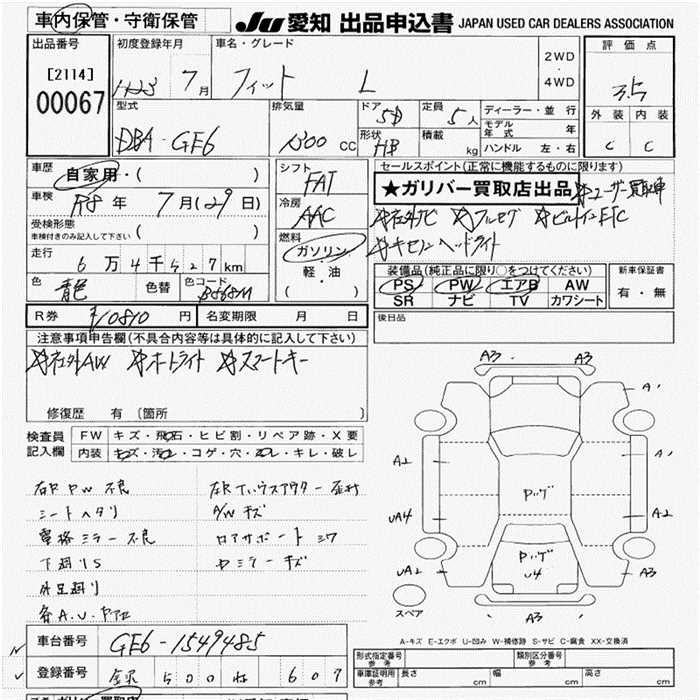 車内保管・守衛保管
JU 愛知 出品申込書 JAPAN USED CAR DEALERS ASSOCIATION
出品番号
[2114]
00067
初度登録年月
H23 7 月
車名・グレード
フィット L
2WD
・
4WD
評価点
3.5
外装 内装
C C
型式
DBA-GE6
排気量
1300 cc
ドア 5D
形状 HB
定員 5 人
積載 kg
ディーラー・並行
モデル年式 年
ハンドル 左・右
車歴
自家用・( )
車検
R8 年 7 月(29 日)
受検形態
車検付きのみ記入して下さい ( )
走行
6 万 4 千 527 km
色
青色
色替
色コード
B568M
シフト
FAT
冷房
AAC
燃料
ガソリン
軽・油
( )
セールスポイント(正常に機能するものに限ります)
★ガリバー買取店出品 ☆ユーザー買取車
☆社外ナビ ☆フルセグ ☆ビルトインETC
☆キセノンヘッドライト
装備品(純正品に限り○をつけてください)
PS PW エアB AW
SR ナビ TV カワシート
新車保証書
有・無
R券 ¥10810 円
名変期限 月 日
後日品
注意事項申告欄(不具合内容等は具体的に記入して下さい)
☆社外AW ☆オートライト ☆スマートキー
修復歴 有 〔箇所 〕
検査員
記入欄
FW キズ・飛石・ヒビ割・リペア跡・X要
内装 キズ・汚れ・コゲ・穴・スレ・キレ・破レ
右P PW 不良
シートヘタリ
電格ミラー不良
下廻りS
AWキズ
ロアサポートシワ
ドアミラーキズ
A3 A3
A1
A2 A1
Pッゲ
UA4 A2
Pッゲ
U4
UA2 A3
スペア
A3
A-キズ E-エクボ U-凹み W-補修跡 S-サビ C-腐食 XX-交換済
車台番号 GE6-1549485
登録番号 500 ね 607
形式指定番号
参考
類別区分番号
参考
車庫証明用
参考
長さ cm 幅 cm 高さ cm